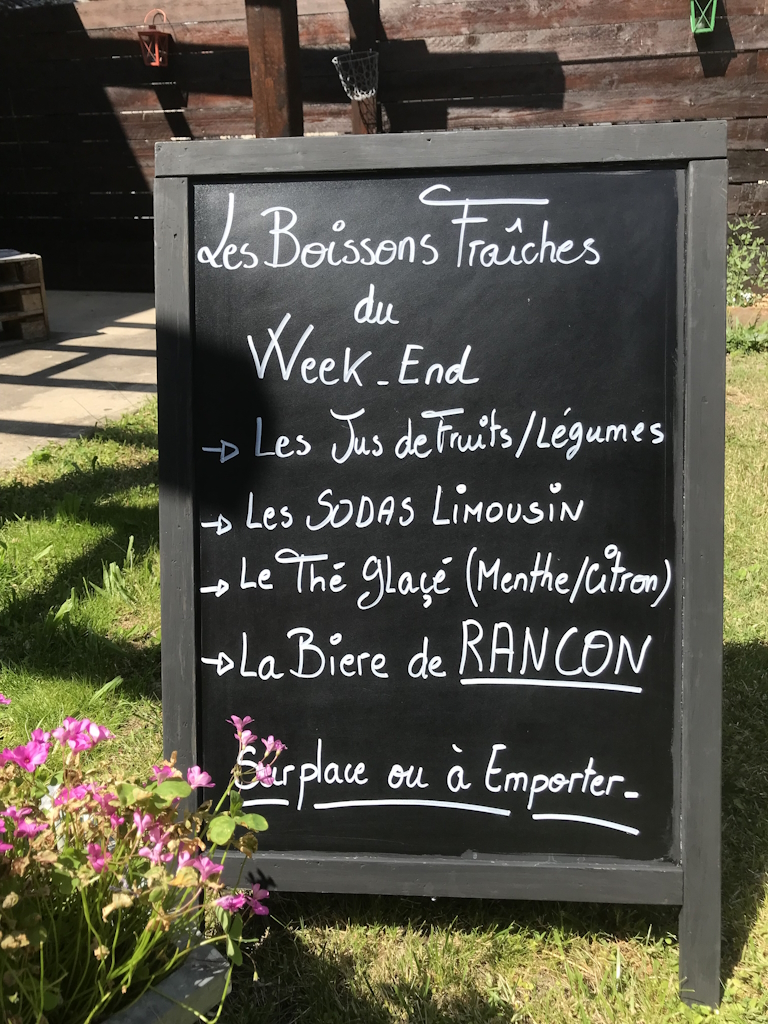 Les Boissons Fraîches
du
Week-End
→ Les Jus de Fruits/Légumes
→ Les SODAS LIMOUSIN
→ Le Thé glaçé (Menthe/Citron)
→ La Biere de RANCON
Sur place ou à Emporter-